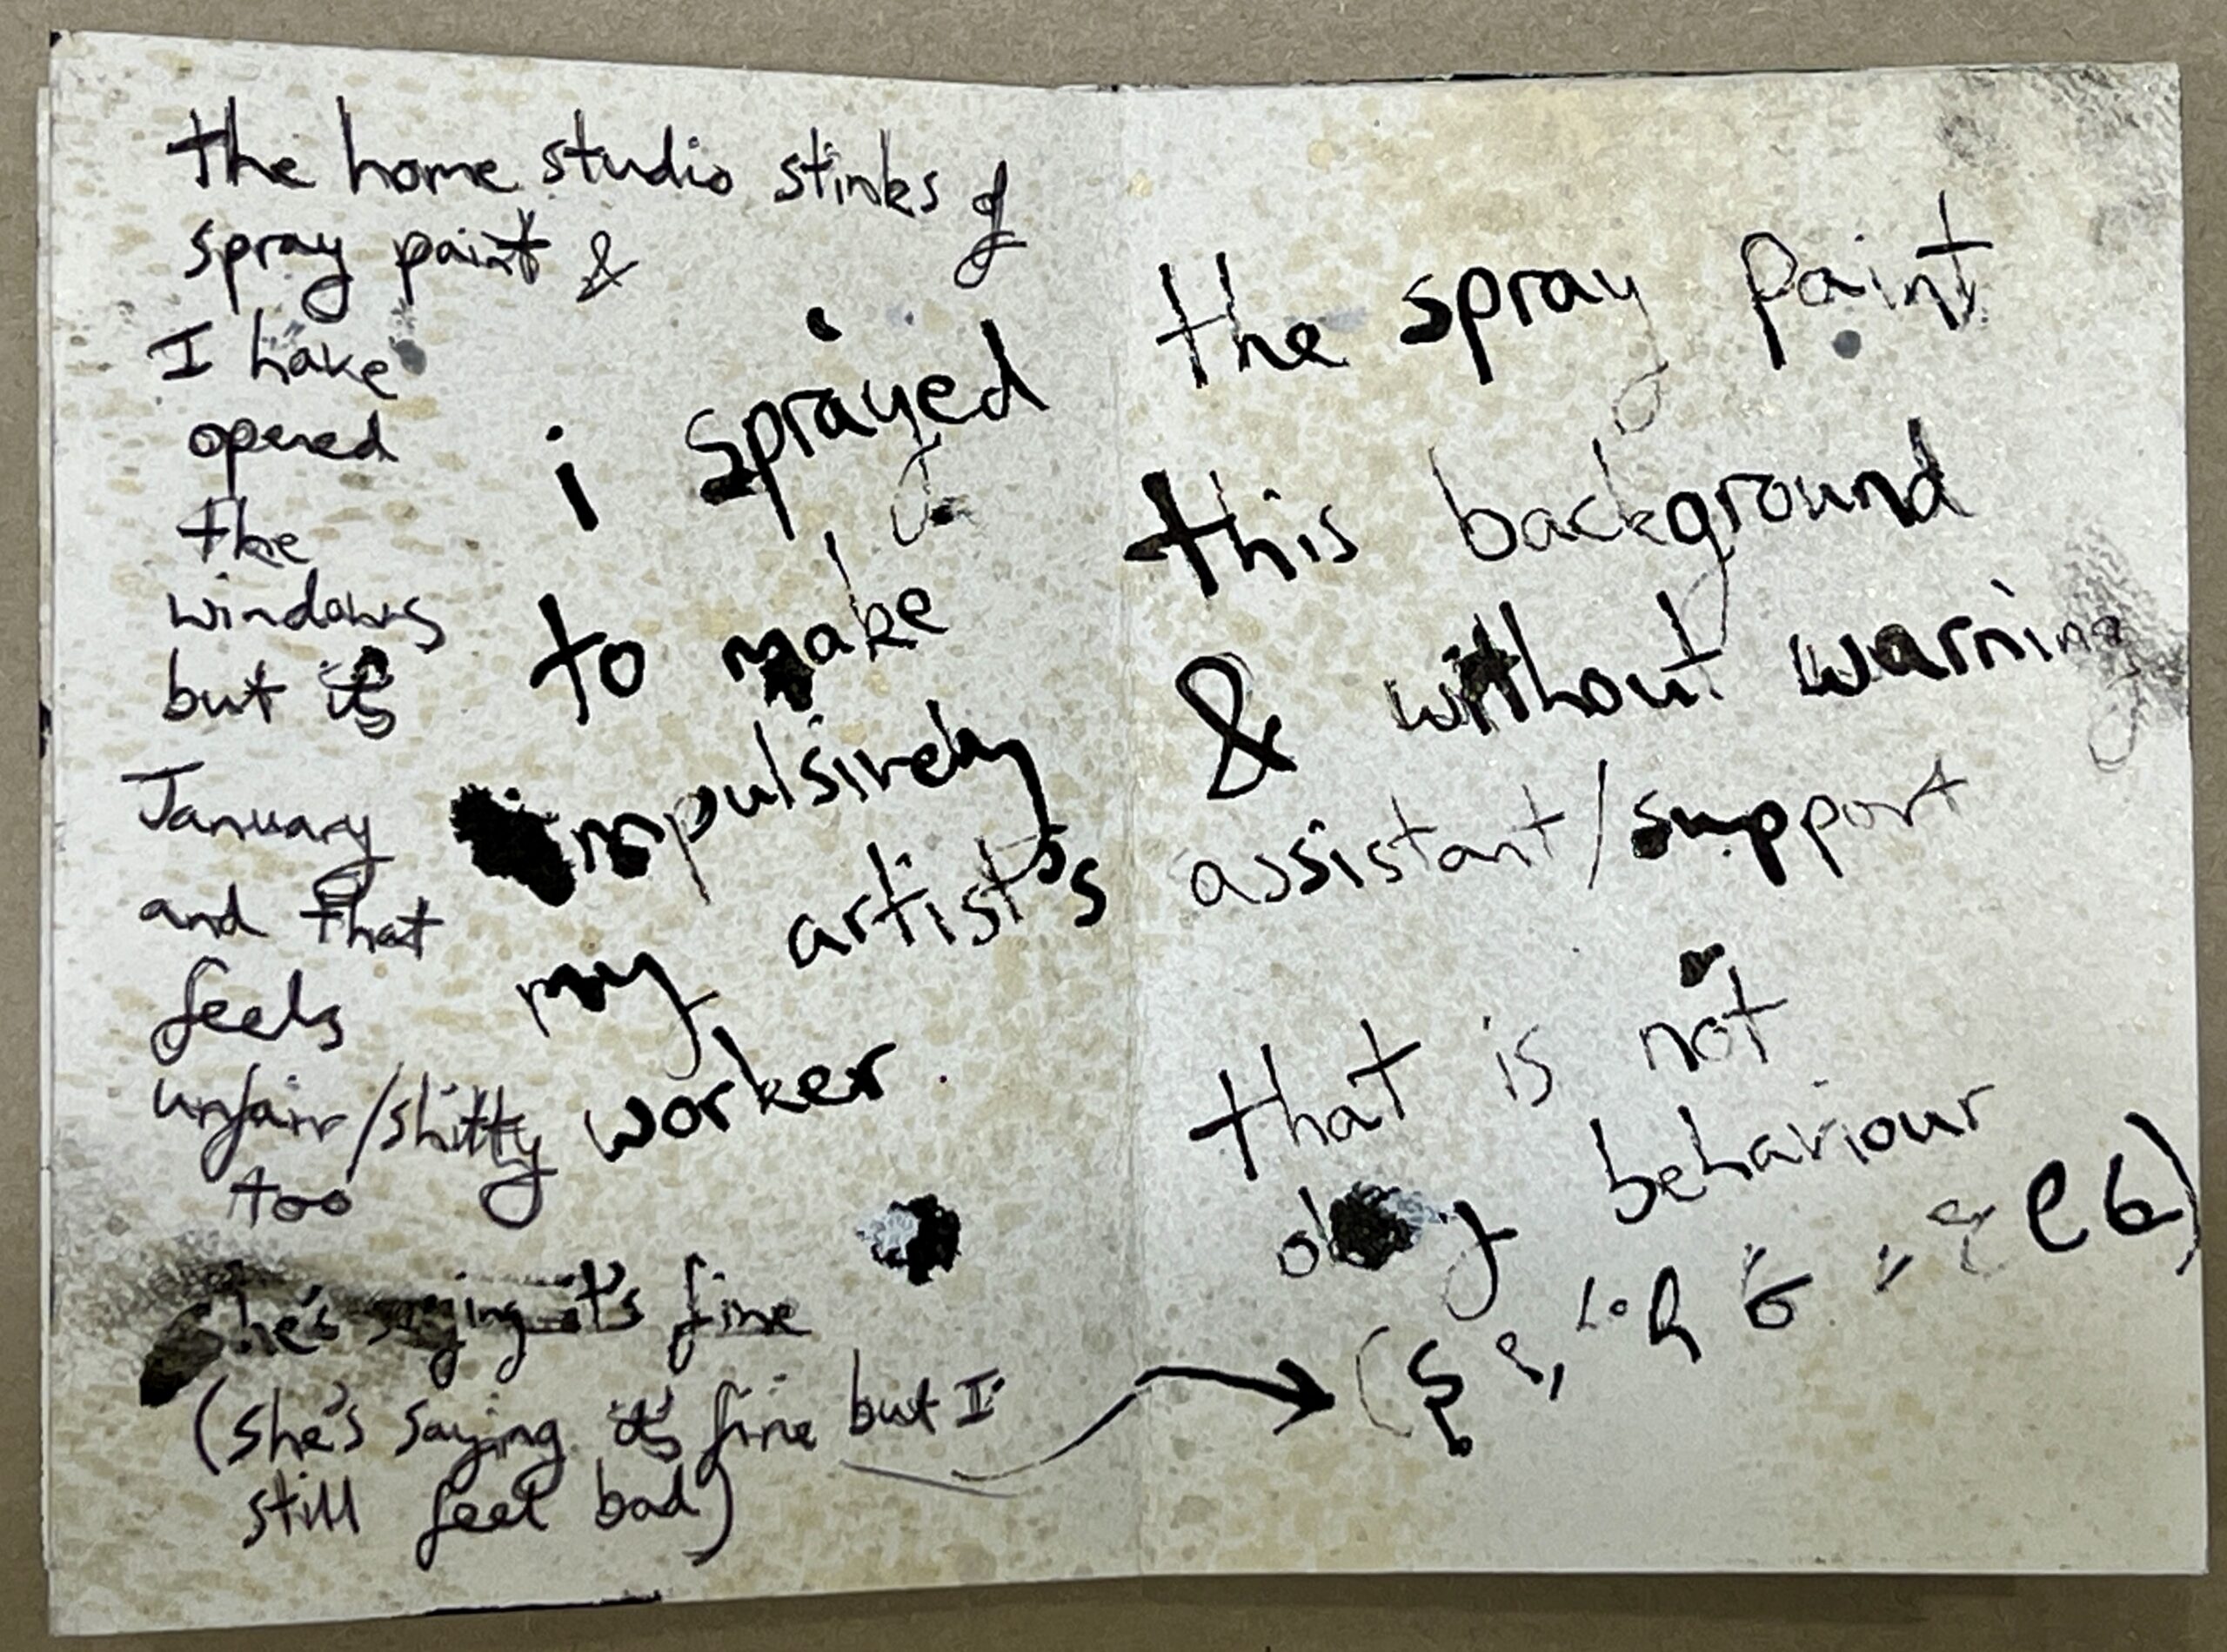 the home studio stinks of
spray paint &
I have
opened
the
windows
but it's
January
and that
feels
unfair/shitty
too
she's saying it's fine
(she's saying it's fine but I
still feel bad)
i sprayed the spray paint
to make this background
impulsively & without warning
my artist's assistant/support
worker. that is not
okay behaviour